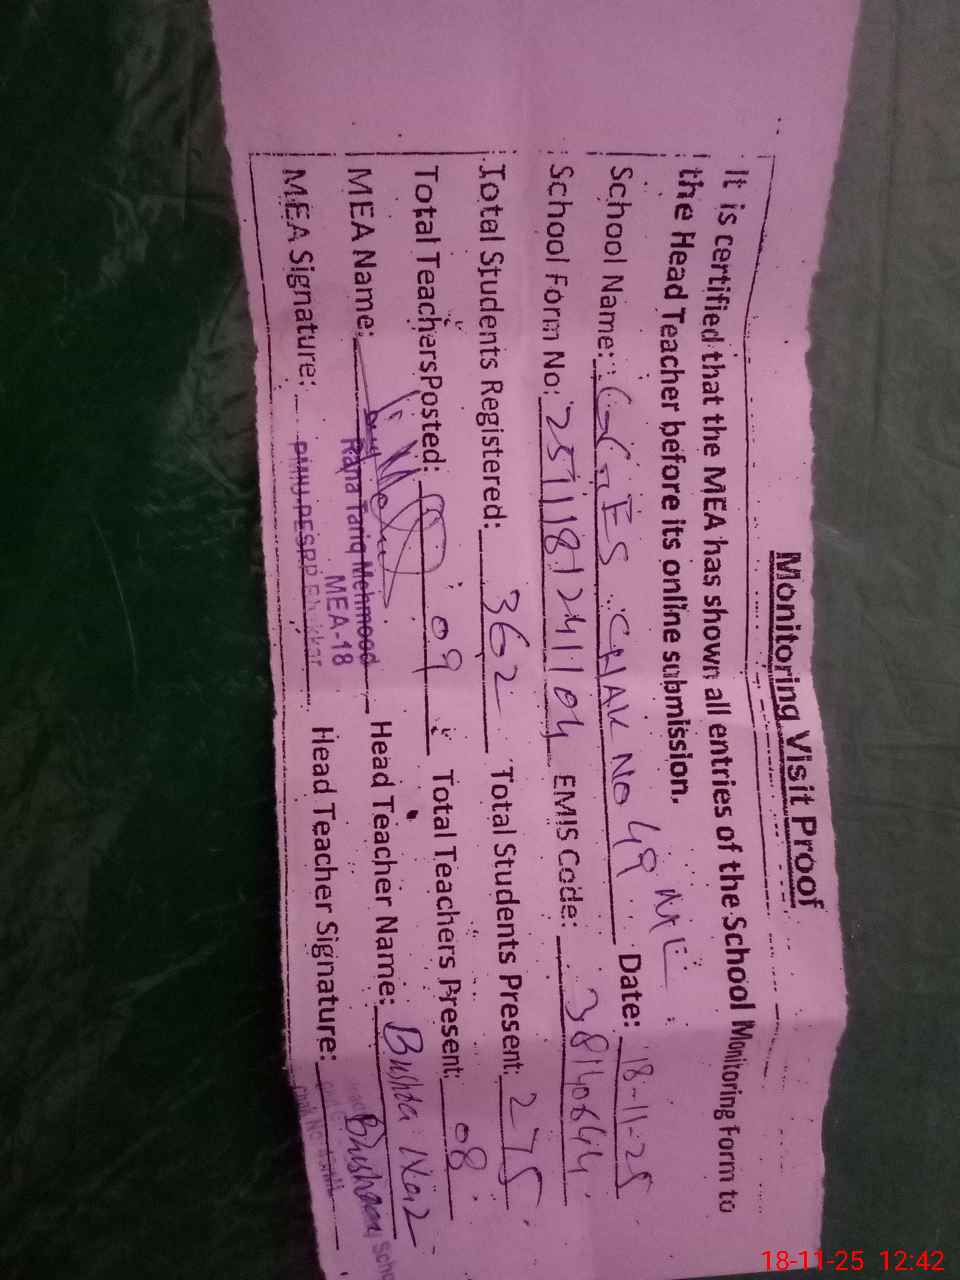 Monitoring Visit Proof
It is certified that the MEA has shown all entries of the School Monitoring Form to
the Head Teacher before its online submission.
School Name: CHAK NO 49 Date: 18-11-25
School Form No: EMIS Code: 38140644
Total Students Registered: 362 Total Students Present: 275
Total Teachers Posted: 09 Total Teachers Present: 08
MEA Name: Rana Tariq Mehmood Head Teacher Name: Bushra Naz
MEA-18
MEA Signature: PMIU-PESRP Bhakkar Head Teacher Signature:
18-11-25 12:42